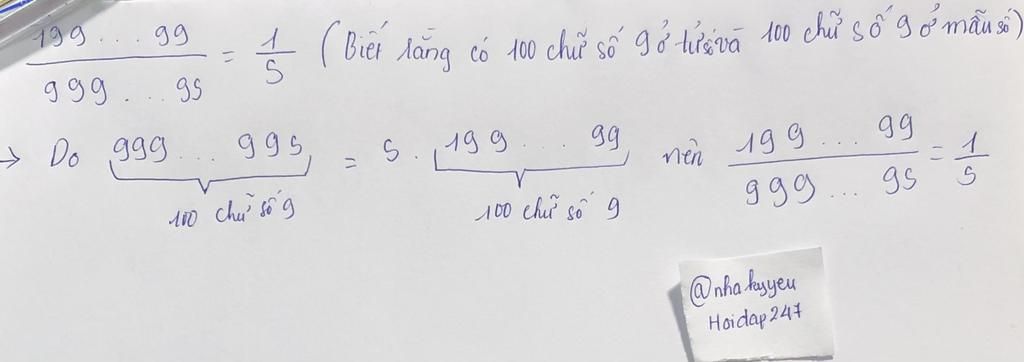 199...99 / 999...95 = 1/5 (Biết rằng có 100 chữ số 9 ở tử số và 100 chữ số 9 ở mẫu số)
→ Do 999...995 = 5 . 199...99 nên 199...99 / 999...95 = 1/5
100 chữ số 9 100 chữ số 9
@nhakyyeu
Hoidap247